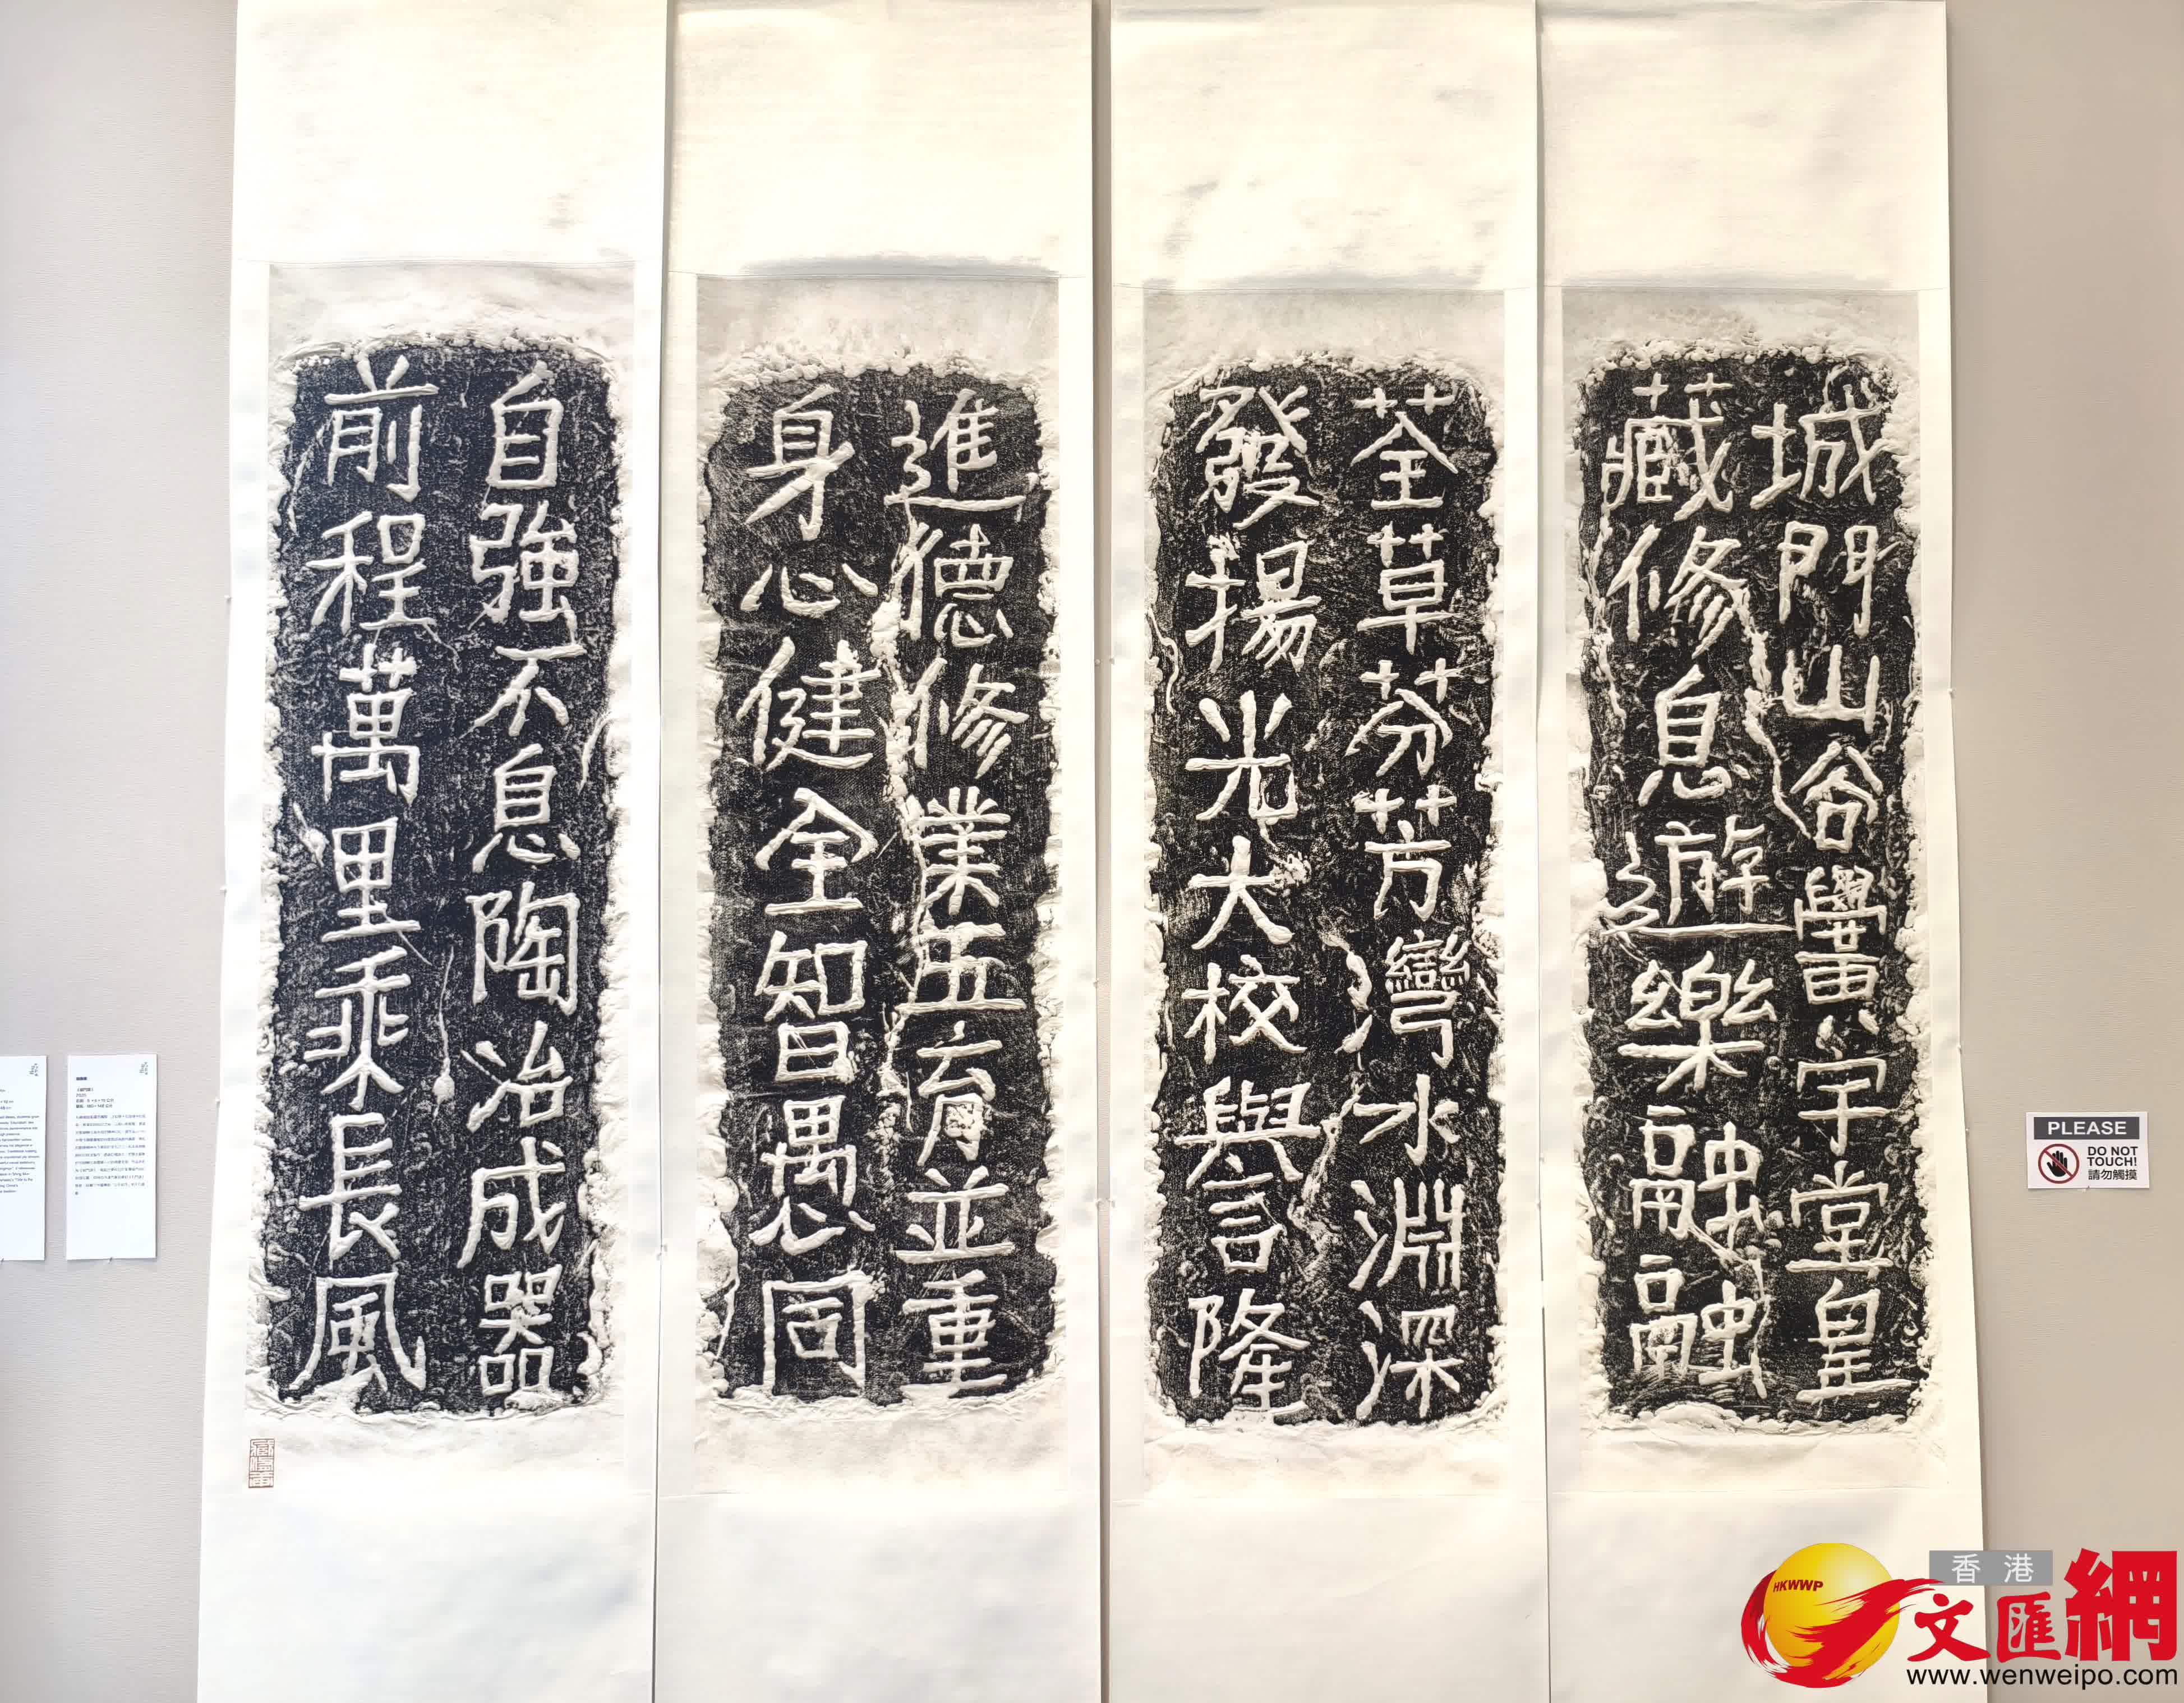 城門山谷黌宇堂皇
藏修息遊樂融融
荃草芬芳灣水淵深
發揚光大校譽隆
進德修業五育並重
身心健全智愚同
自強不息陶冶成器
前程萬里乘長風
PLEASE
DO NOT
TOUCH!
請勿觸摸
HKWWP
香港
文匯網
www.wenweipo.com